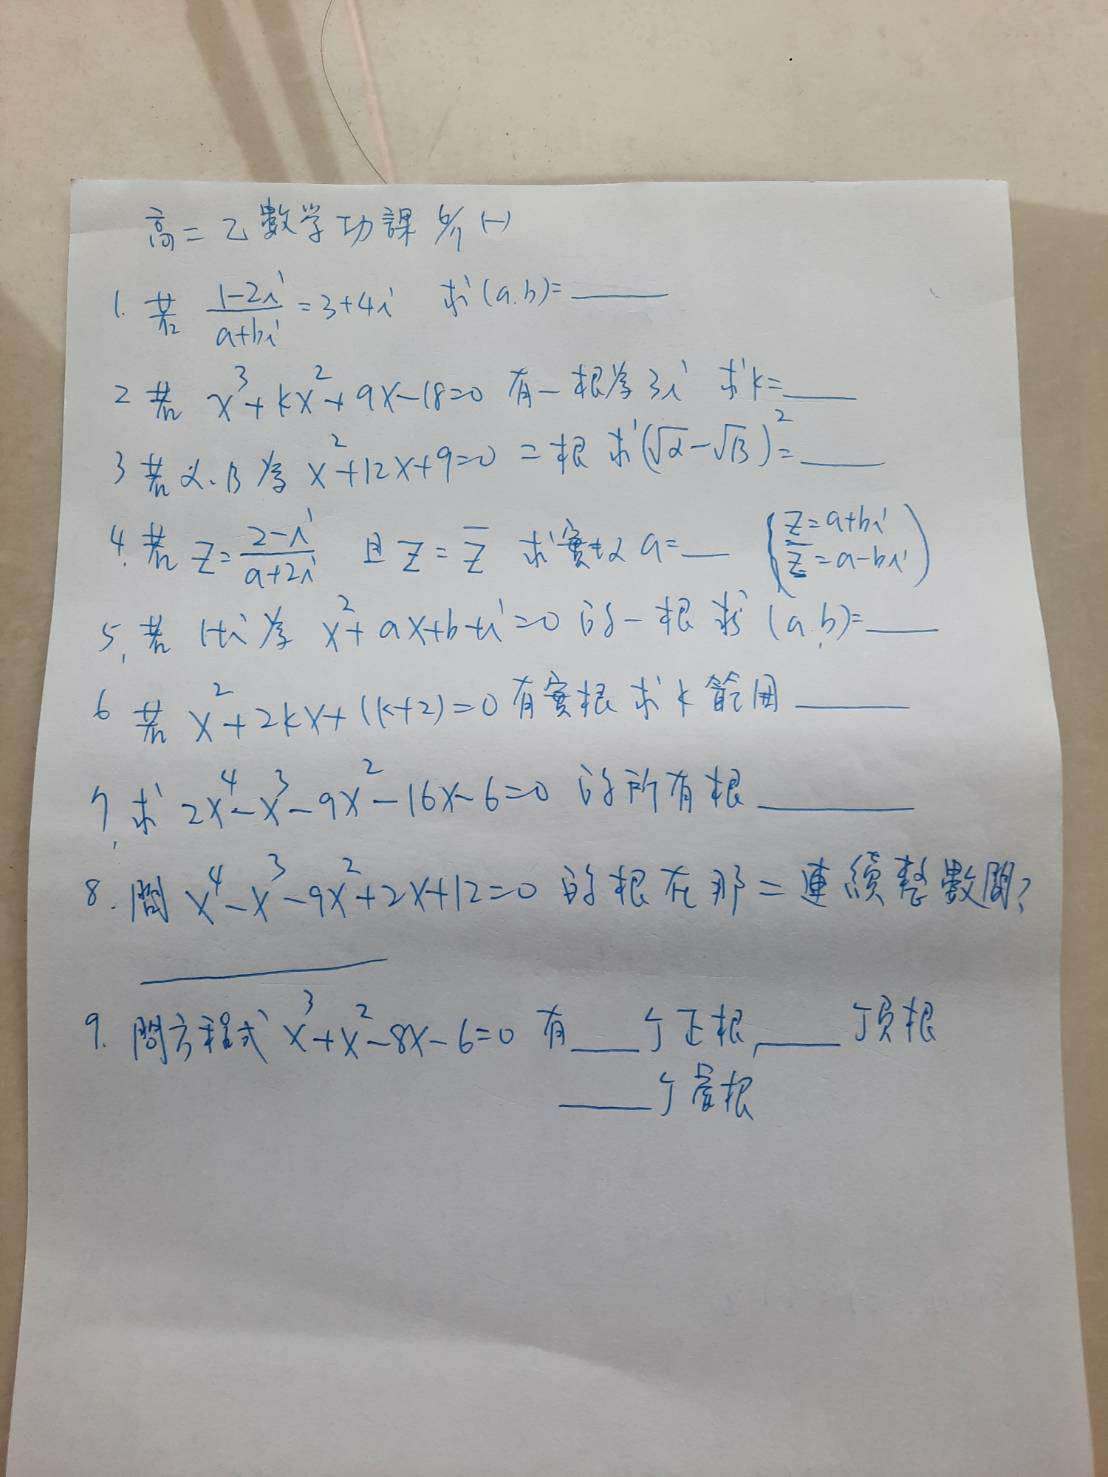 高二乙數学功課 (一)
1. 若 (1-2i)/(a+bi) = 3+4i 求(a.b)=____
2 若 x³+kx²+9x-18=0 有一根為3i 求k=____
3 若α.β為 x²+12x+9=0 二根 求(√α-√β)²=____
4. 若 z=(2-i)/(a+2i) 且 z=z̄ 求實数a=__ (z=a+bi
z̄=a-bi)
5. 若 1+i 為 x²+ax+b+i=0 的一根 求 (a,b)=____
6 若 x²+2kx+(k+2)=0 有實根 求k範围____
7. 求 2x⁴-x³-9x²-16x-6=0 的所有根____
8. 問 x⁴-x³-9x²+2x+12=0 的根在那二連續整數間?
____
9. 問方程式 x³+x²-8x-6=0 有___个正根,____个負根
____个虛根